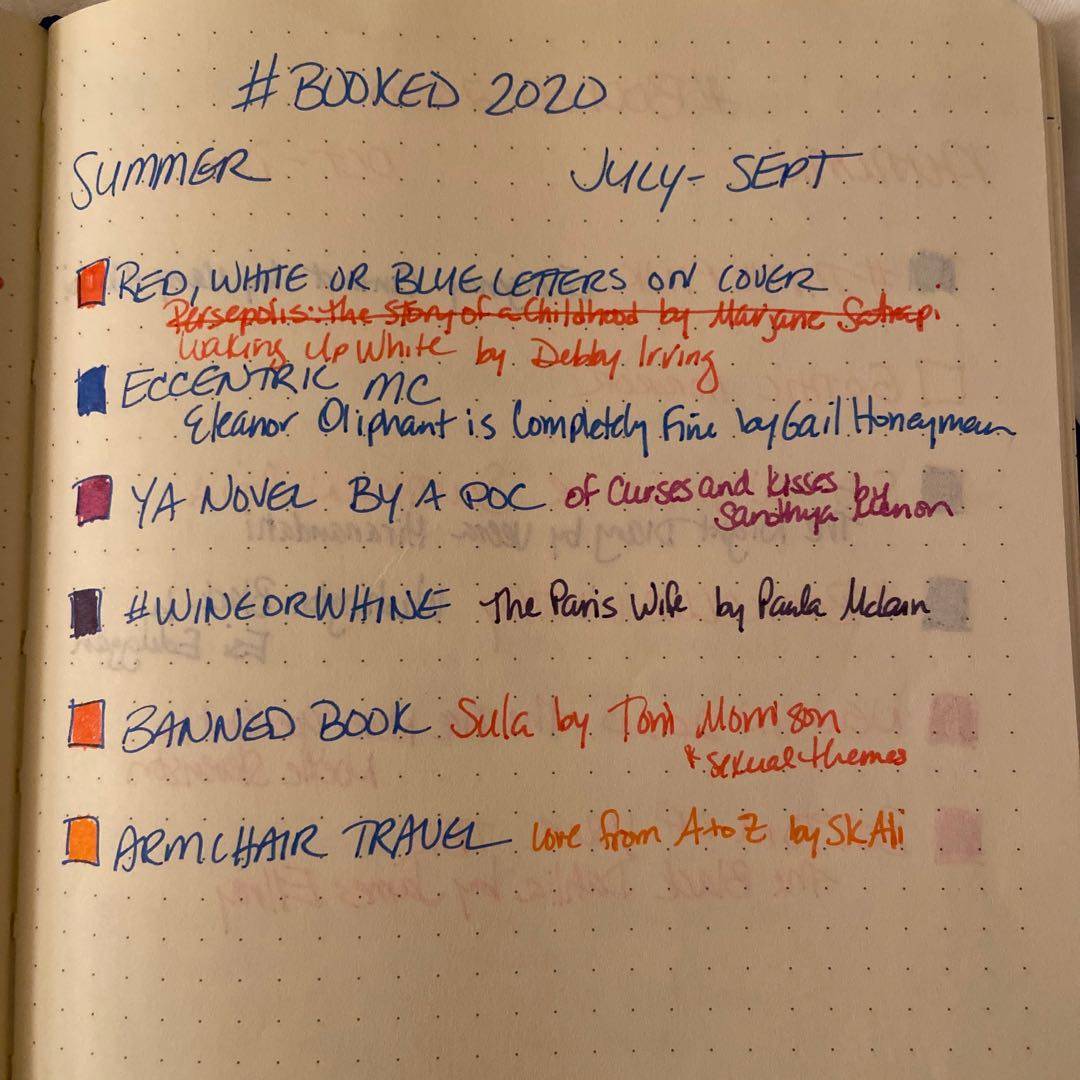 #BOOKED 2020
SUMMER JULY - SEPT
RED, WHITE OR BLUE LETTERS ON COVER
Persepolis: the Story of a Childhood by Marjane Satrapi
Waking Up White by Debby Irving
ECCENTRIC MC
Eleanor Oliphant is Completely Fine by Gail Honeyman
YA NOVEL BY A POC of Curses and kisses by
Sandhya Menon
#WINEORWHINE The Paris Wife by Paula Mclain
BANNED BOOK Sula by Toni Morrison
* sexual themes
ARMCHAIR TRAVEL Love from A to Z by SK Ali